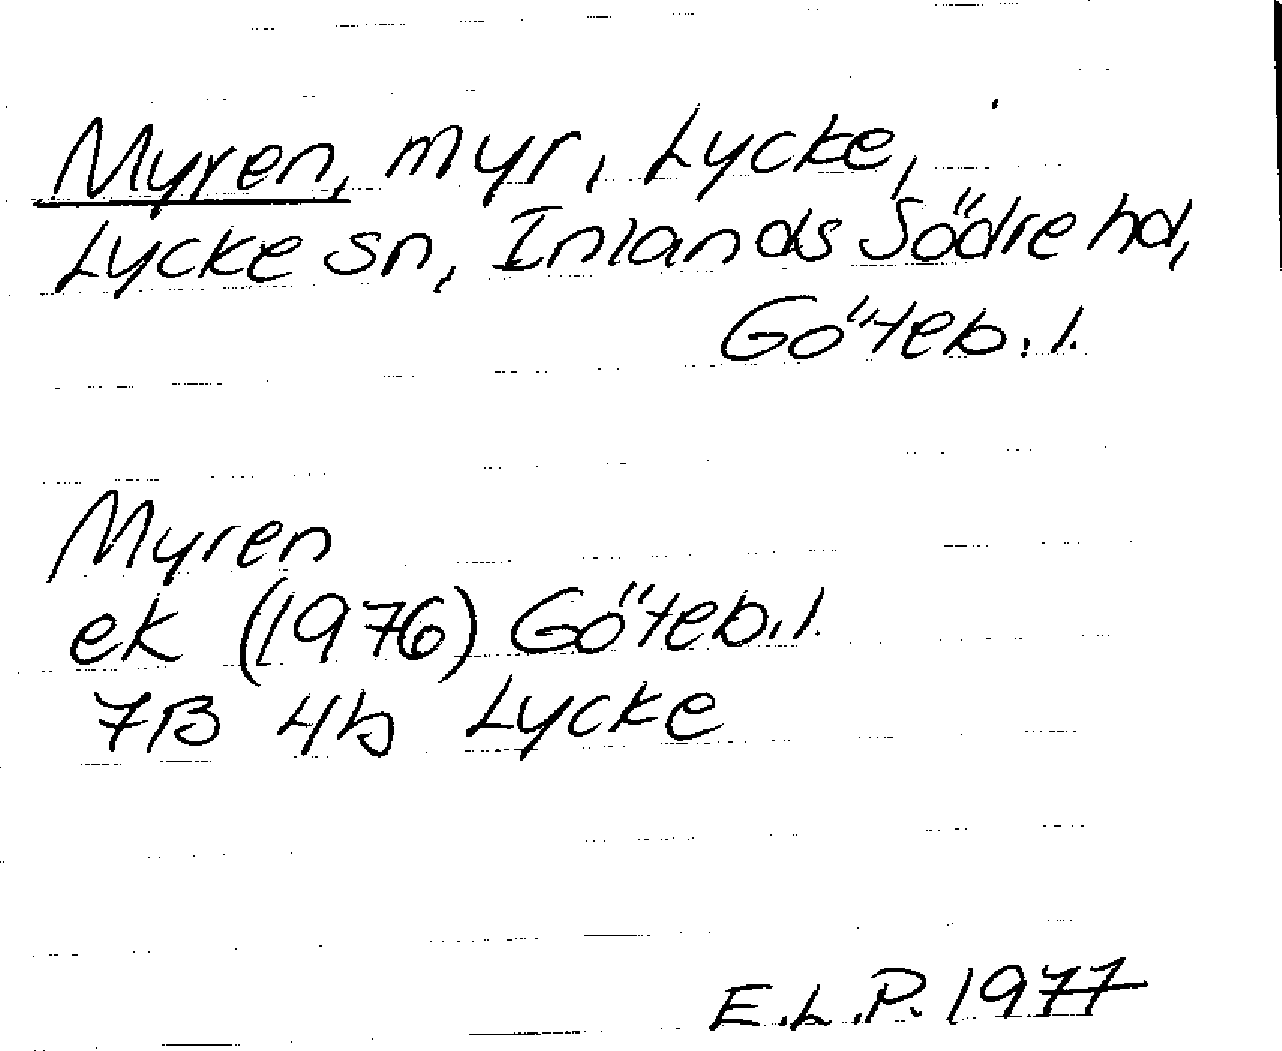 Myren, myr, Lycke,
Lycke sn, Inlands Södre hd,
Göteb.l.
Myren
ek (1976) Göteb.l.
7B 4b Lycke
E.L.P. 1977